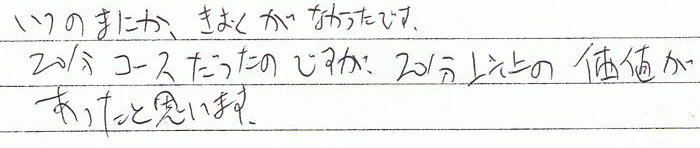 いつのまにか、きおくがなかったです。
20分コースだったのですが、20分以上の価値が
あったと思います。